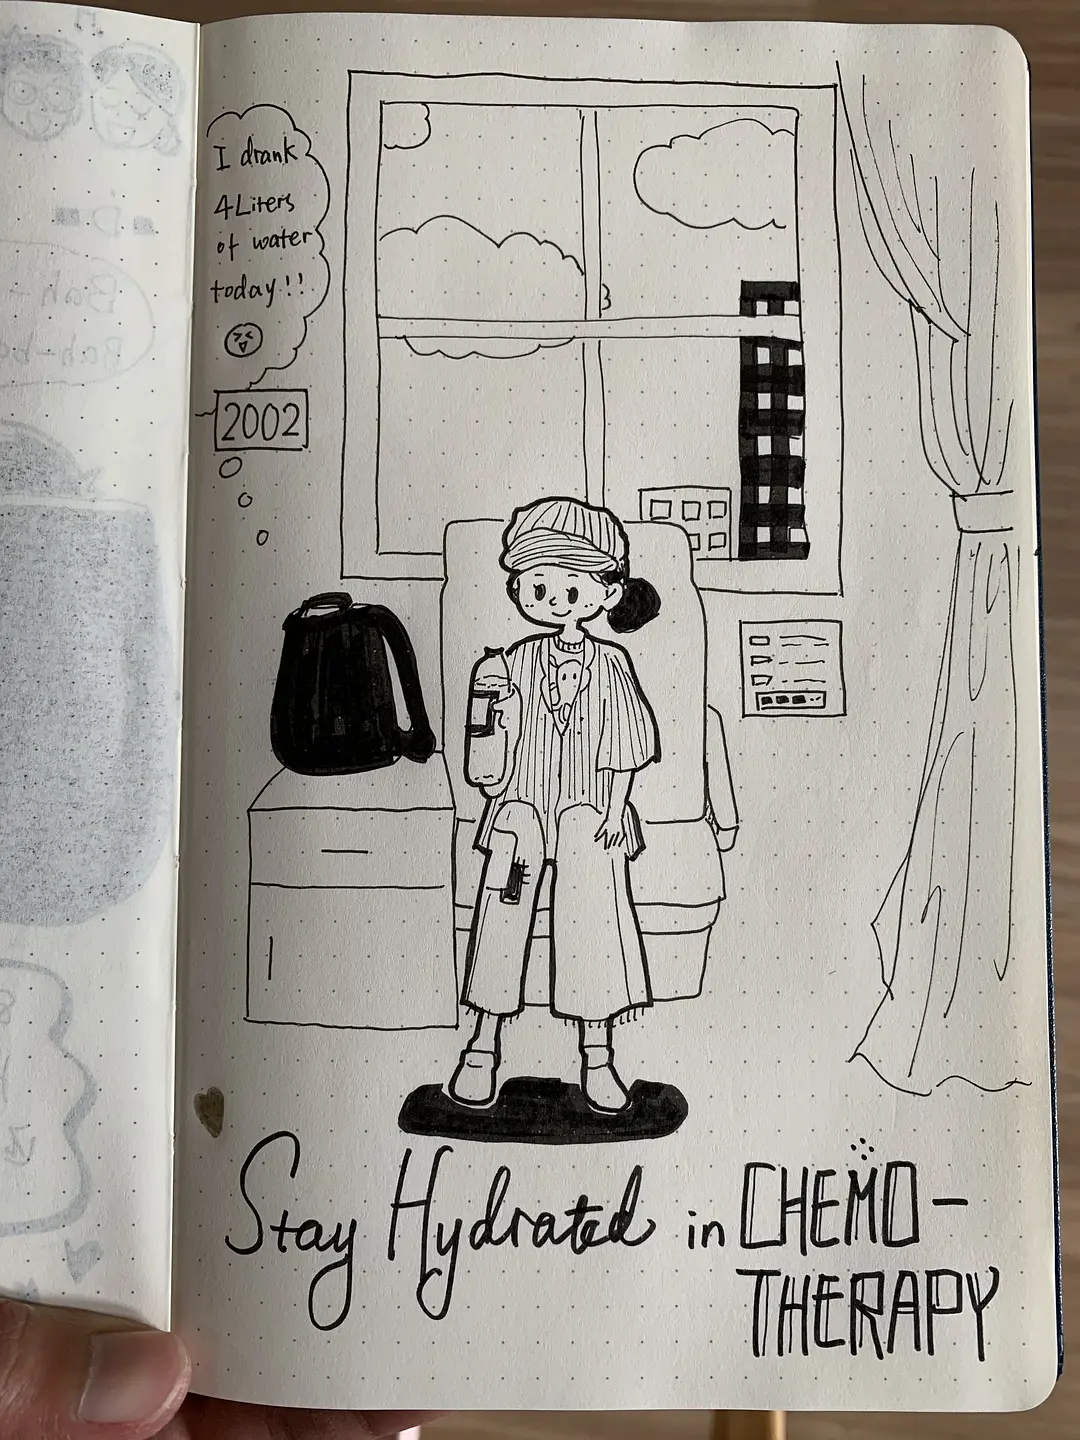 I drank
4Liters
of water
today!!
2002
Stay Hydrated in CHEMO-
THERAPY